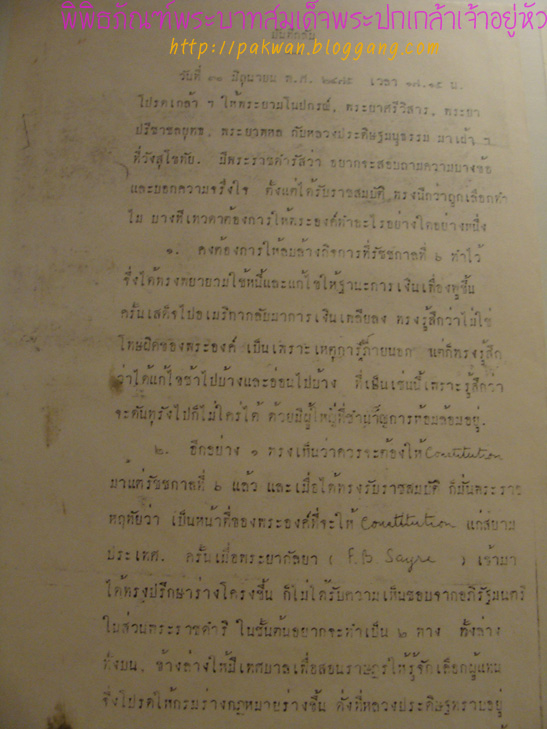 พิพิธภัณฑ์พระบาทสมเด็จพระปกเกล้าเจ้าอยู่หัว
บันทึกลับ
http://pakwan.bloggang.com
วันที่ ๓๐ มิถุนายน พ.ศ. ๒๔๗๕ เวลา ๑๗.๑๕ น.
โปรดเกล้า ฯ ให้พระยามโนปกรณ์, พระยาศรีวิสาร, พระยา
ปรีชาชลยุทธ, พระยาพหล กับหลวงประดิษฐมนูธรรม มาเฝ้า ฯ
ที่วังสุโขทัย. มีพระราชดำรัสว่า อยากจะสอบถามความบางข้อ
และบอกความจริงใจ ตั้งแต่ได้รับราชสมบัติ ทรงนึกว่าถูกเลือกทำ
ไม บางทีเทวดาต้องการให้พระองค์ทำอะไรอย่างใดอย่างหนึ่ง
๑. คงต้องการให้ลบล้างกิจการที่รัชชกาลที่ ๖ ทำไว้
ซึ่งได้ทรงพยายามใช้หนี้และแก้ไขให้ฐานะการเงินเฟื่องฟูขึ้น
ครั้นเสด็จไปอเมริกากลับมาการเงินเหลือลง ทรงรู้สึกว่าไม่ใช่
โทษผิดของพระองค์ เป็นเพราะเหตุการณ์ภายนอก แต่ก็ทรงรู้สึก
ว่าได้แก้ไขช้าไปบ้างและอ่อนไปบ้าง ที่เป็นเช่นนี้เพราะรู้สึกว่า
จะดันทุรังไปก็ไม่ใคร่ได้ ด้วยมีผู้ใหญ่ที่ชำนาญการห้อมล้อมอยู่.
๒. อีกอย่าง ๑ ทรงเห็นว่าควรจะต้องให้ Constitution
มาแต่รัชชกาลที่ ๖ แล้ว และเมื่อได้ทรงรับราชสมบัติ ก็มั่นพระราช
หฤทัยว่า เป็นหน้าที่ของพระองค์ที่จะให้ Constitution แก่สยาม
ประเทศ. ครั้นเมื่อพระยากัลยา ( F.B. Sayre ) เข้ามา
ได้ทรงปรึกษาร่างโครงขึ้น ก็ไม่ได้รับความเห็นชอบจากอภิรัฐมนตรี
ในส่วนพระราชดำริ ในชั้นต้นอยากจะทำเป็น ๒ ทาง ทั้งล่าง
ทั้งบน. ข้างล่างให้มีเทศบาลเพื่อสอนราษฎรให้รู้จักเลือกผู้แทน
จึงโปรดให้กรมร่างกฎหมายร่างขึ้น ดั่งที่หลวงประดิษฐทราบอยู่